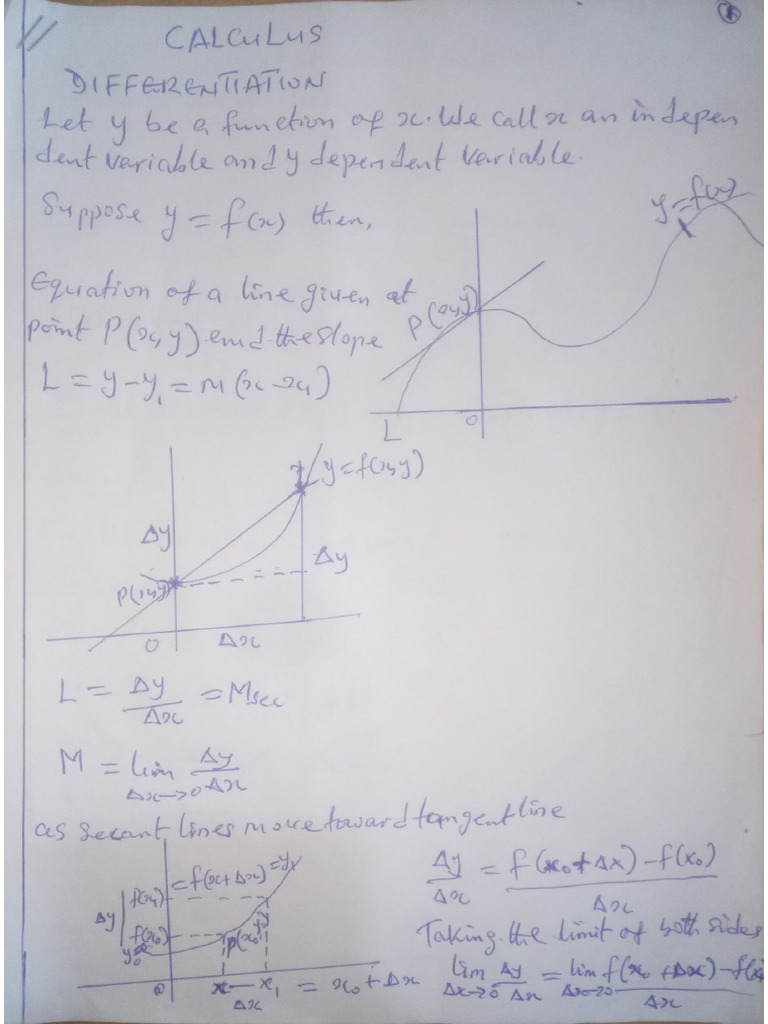 CALCULUS
DIFFERENTIATION
Let y be a function of x. We call x an indepen
dent variable and y dependent variable.
Suppose y = f(x) then,
y = f(x)
Equation of a line given at
point P(x,y) and the slope
P(x,y)
L = y-y₁ = m(x-x₁)
L
0
y = f(x,y)
Δy
Δy
P(x,y)
0 Δx
L = Δy/Δx = Msec
M = lim Δx→0 Δy/Δx
as secant lines move toward tangent line
Δy f(x₁) = f(x+Δx) = y₁
f(x₀)
y₀
0 x₁ = x₀ + Δx
Δx
Δy/Δx = f(x₀+Δx) - f(x₀)/Δx
Taking the limit of both sides
lim Δx→0 Δy/Δx = lim Δx→0 f(x₀+Δx) - f(x₀/Δx